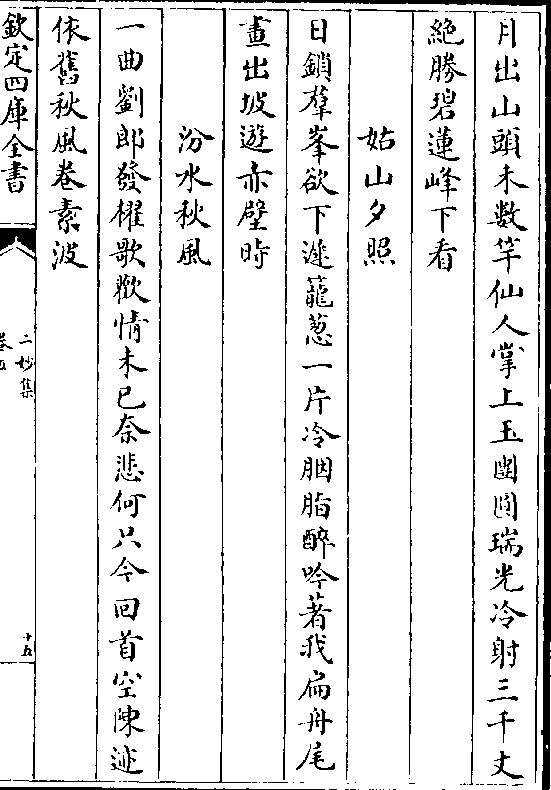 月出山頭未數竿仙人掌上玉團圓瑞光冷射三千丈
絶勝碧蓮峰下看
姑山夕照
日鎖羣峯欲下遲蘢葱一片冷胭脂醉吟著我扁舟尾
畫出坡遊赤壁時
汾水秋風
一曲劉郎發櫂歌歡情未已奈悲何只今回首空陳迹
依舊秋風卷素波
欽定四庫全書
二妙集
十五